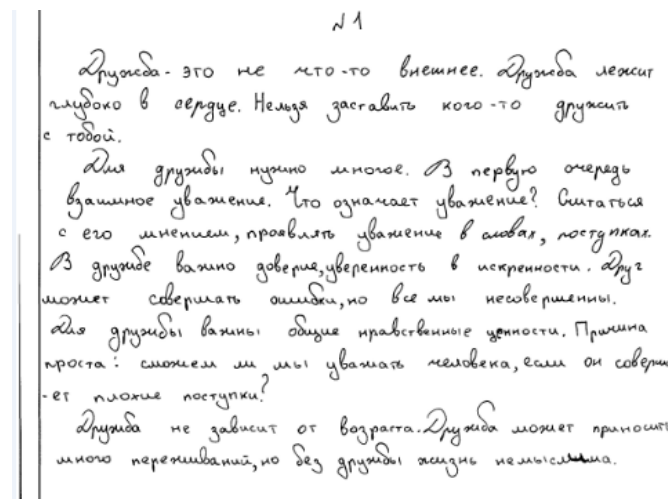 №1
Дружба - это не что-то внешнее. Дружба лежит
глубоко в сердце. Нельзя заставить кого-то дружить
с тобой.
Для дружбы нужно многое. В первую очередь
взаимное уважение. Что означает уважение? Считаться
с его мнением, проявлять уважение в словах, поступках.
В дружбе важно доверие, уверенность в искренности. Друг
может совершать ошибки, но все мы несовершенны.
Для дружбы важны общие нравственные ценности. Причина
проста: сможем ли мы уважать человека, если он соверша
-ет плохие поступки?
Дружба не зависит от возраста. Дружба может приносить
много переживаний, но без дружбы жизнь немыслима.